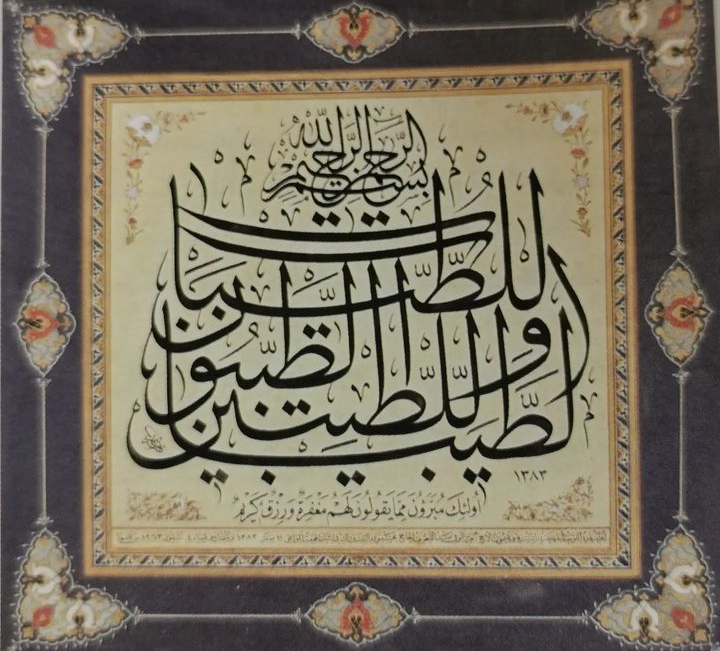 بسم الله الرحمن الرحيم
الطيبات للطيبين والطيبون للطيبات
١٣٨٣
أولئك مبرؤن مما يقولون لهم مغفرة ورزق كريم